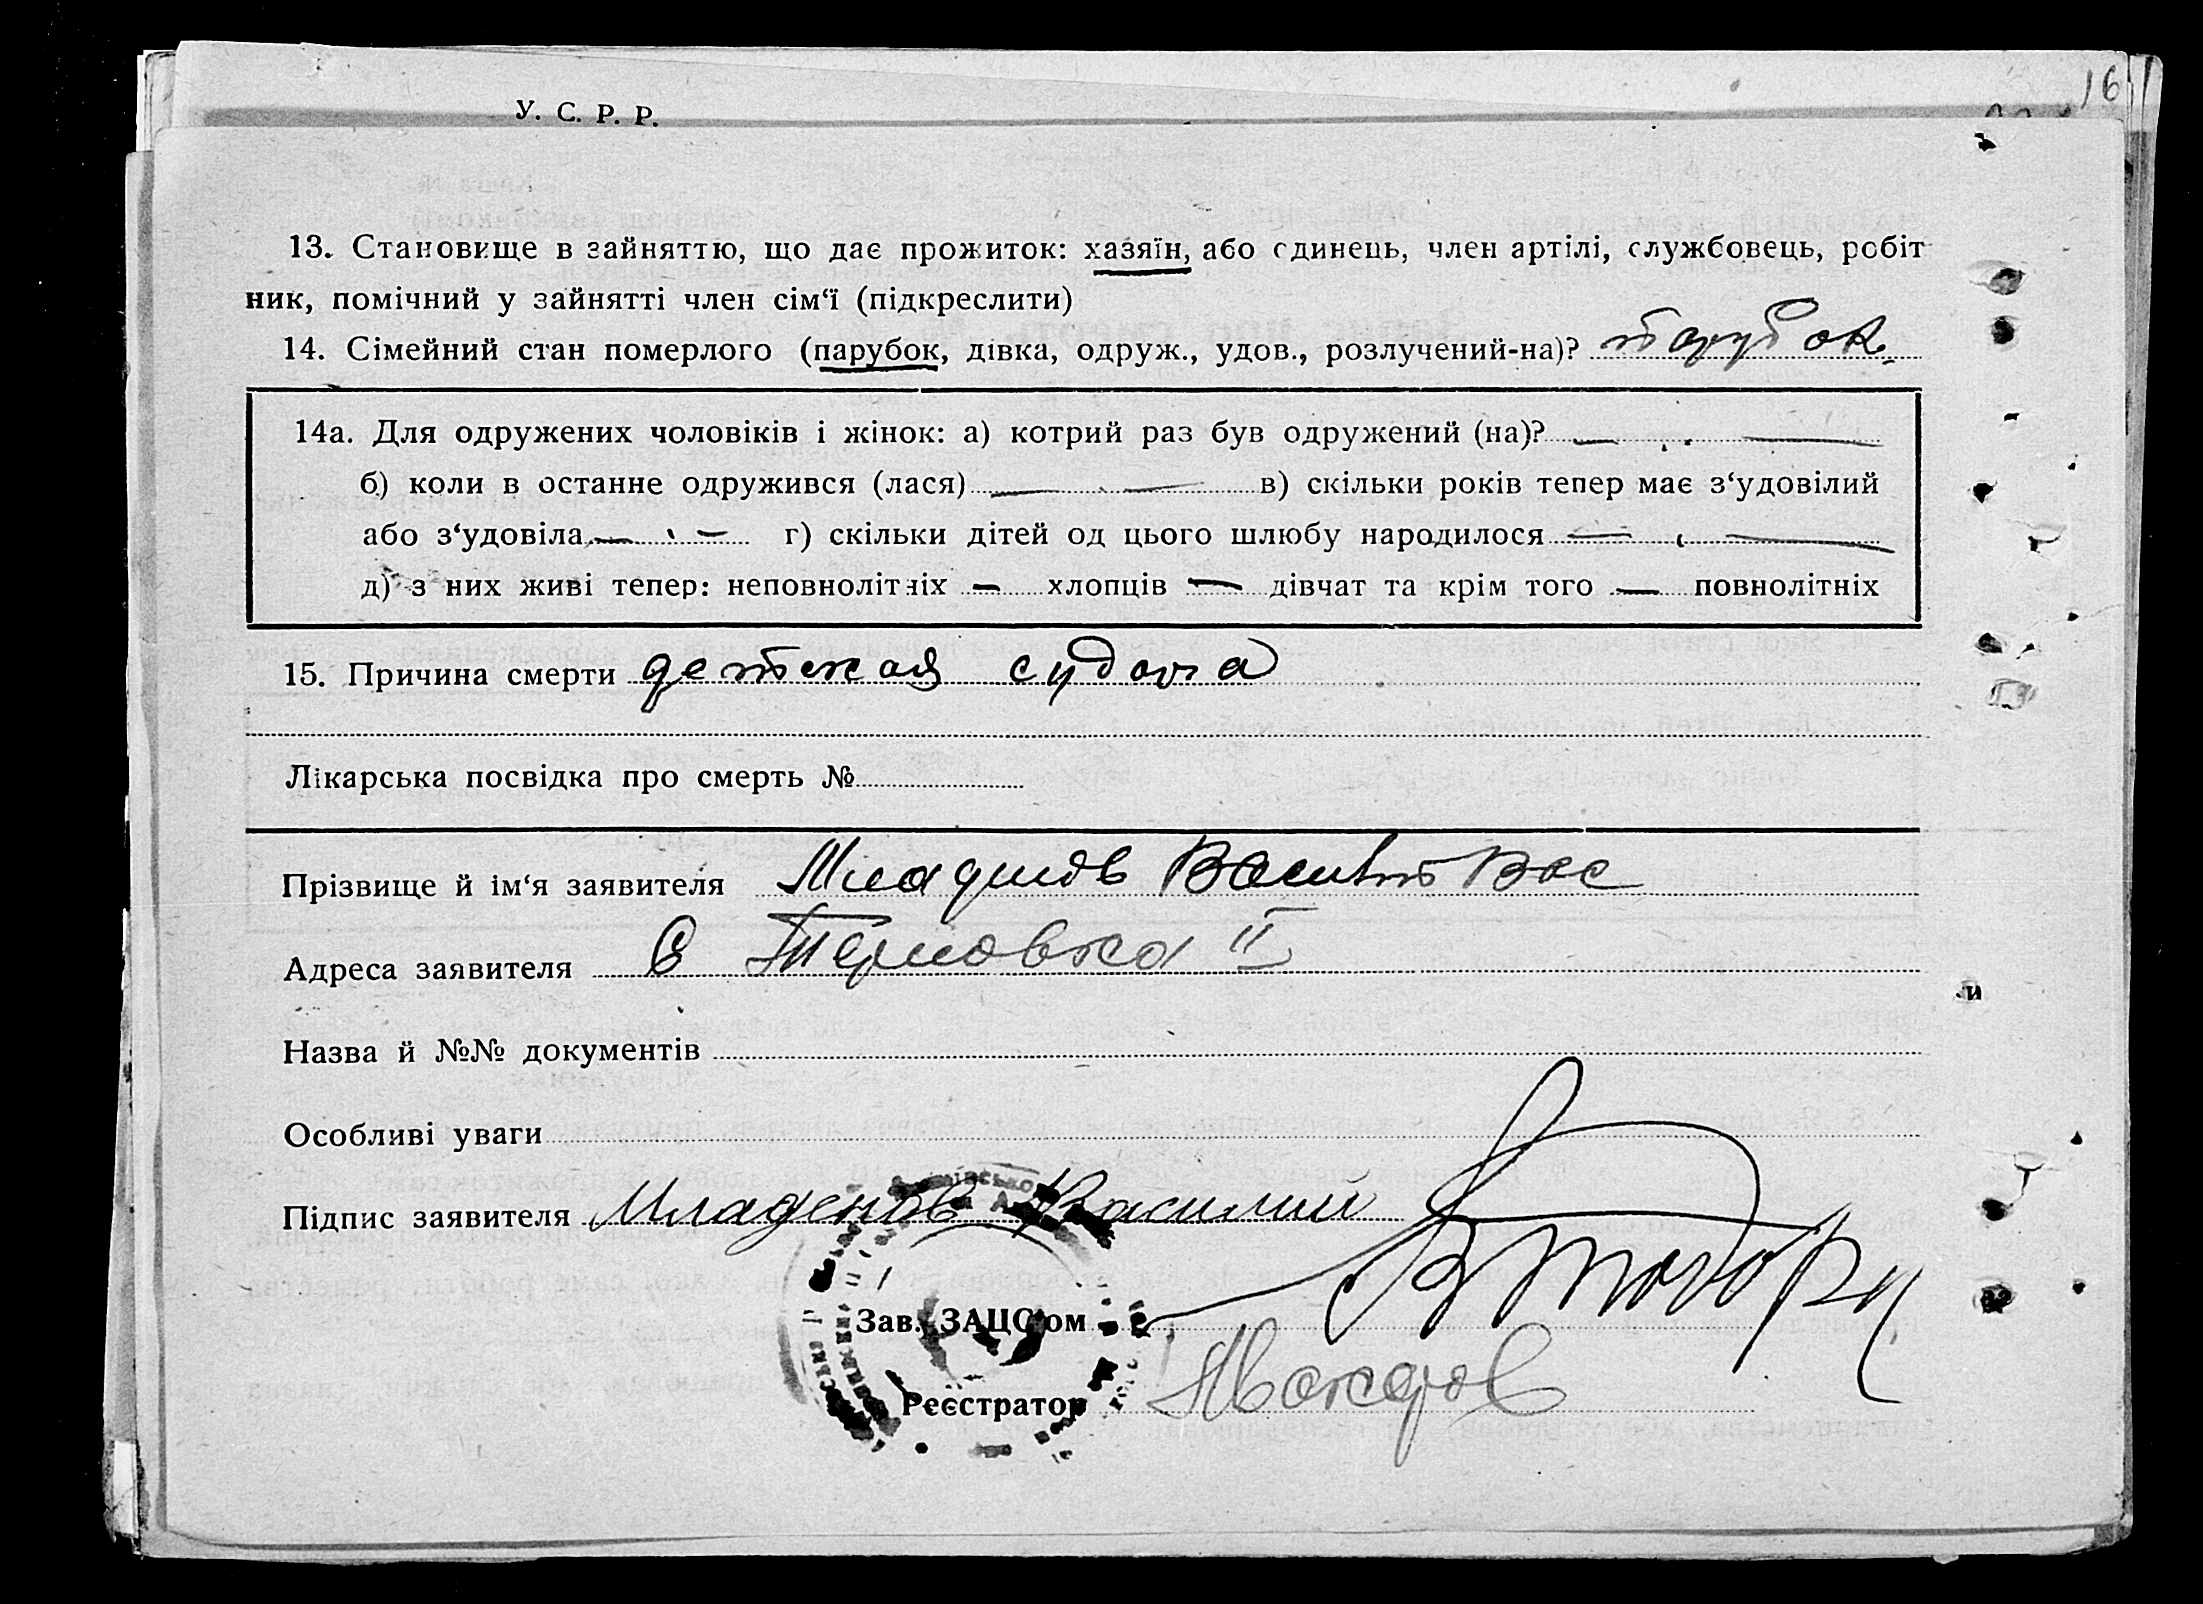 16
У. С. Р. Р.
13. Становище в зайняттю, що дає прожиток: хазяїн, або єдинець, член артілі, службовець, робіт
ник, помічний у зайнятті член сім‘ї (підкреслити)
14. Сімейний стан померлого (парубок, дівка, одруж., удов., розлучений-на)? парубок
14а. Для одружених чоловіків і жінок: а) котрий раз був одружений (на)? —
б) коли в останне одружився (лася) — в) скільки років тепер має з‘удовілий
або з‘удовіла — г) скільки дітей од цього шлюбу народилося —
д) з них живі тепер: неповнолітніх — хлопців — дівчат та крім того — повнолітніх
15. Причина смерти детская судога
Лікарська посвідка про смерть №
Прізвище й ім‘я заявителя Вас
Адреса заявителя С Терновка II
Назва й №№ документів
Особливі уваги
Підпис заявителя Младенов Василий
Зав. ЗАЦС‘ом
Реєстратор